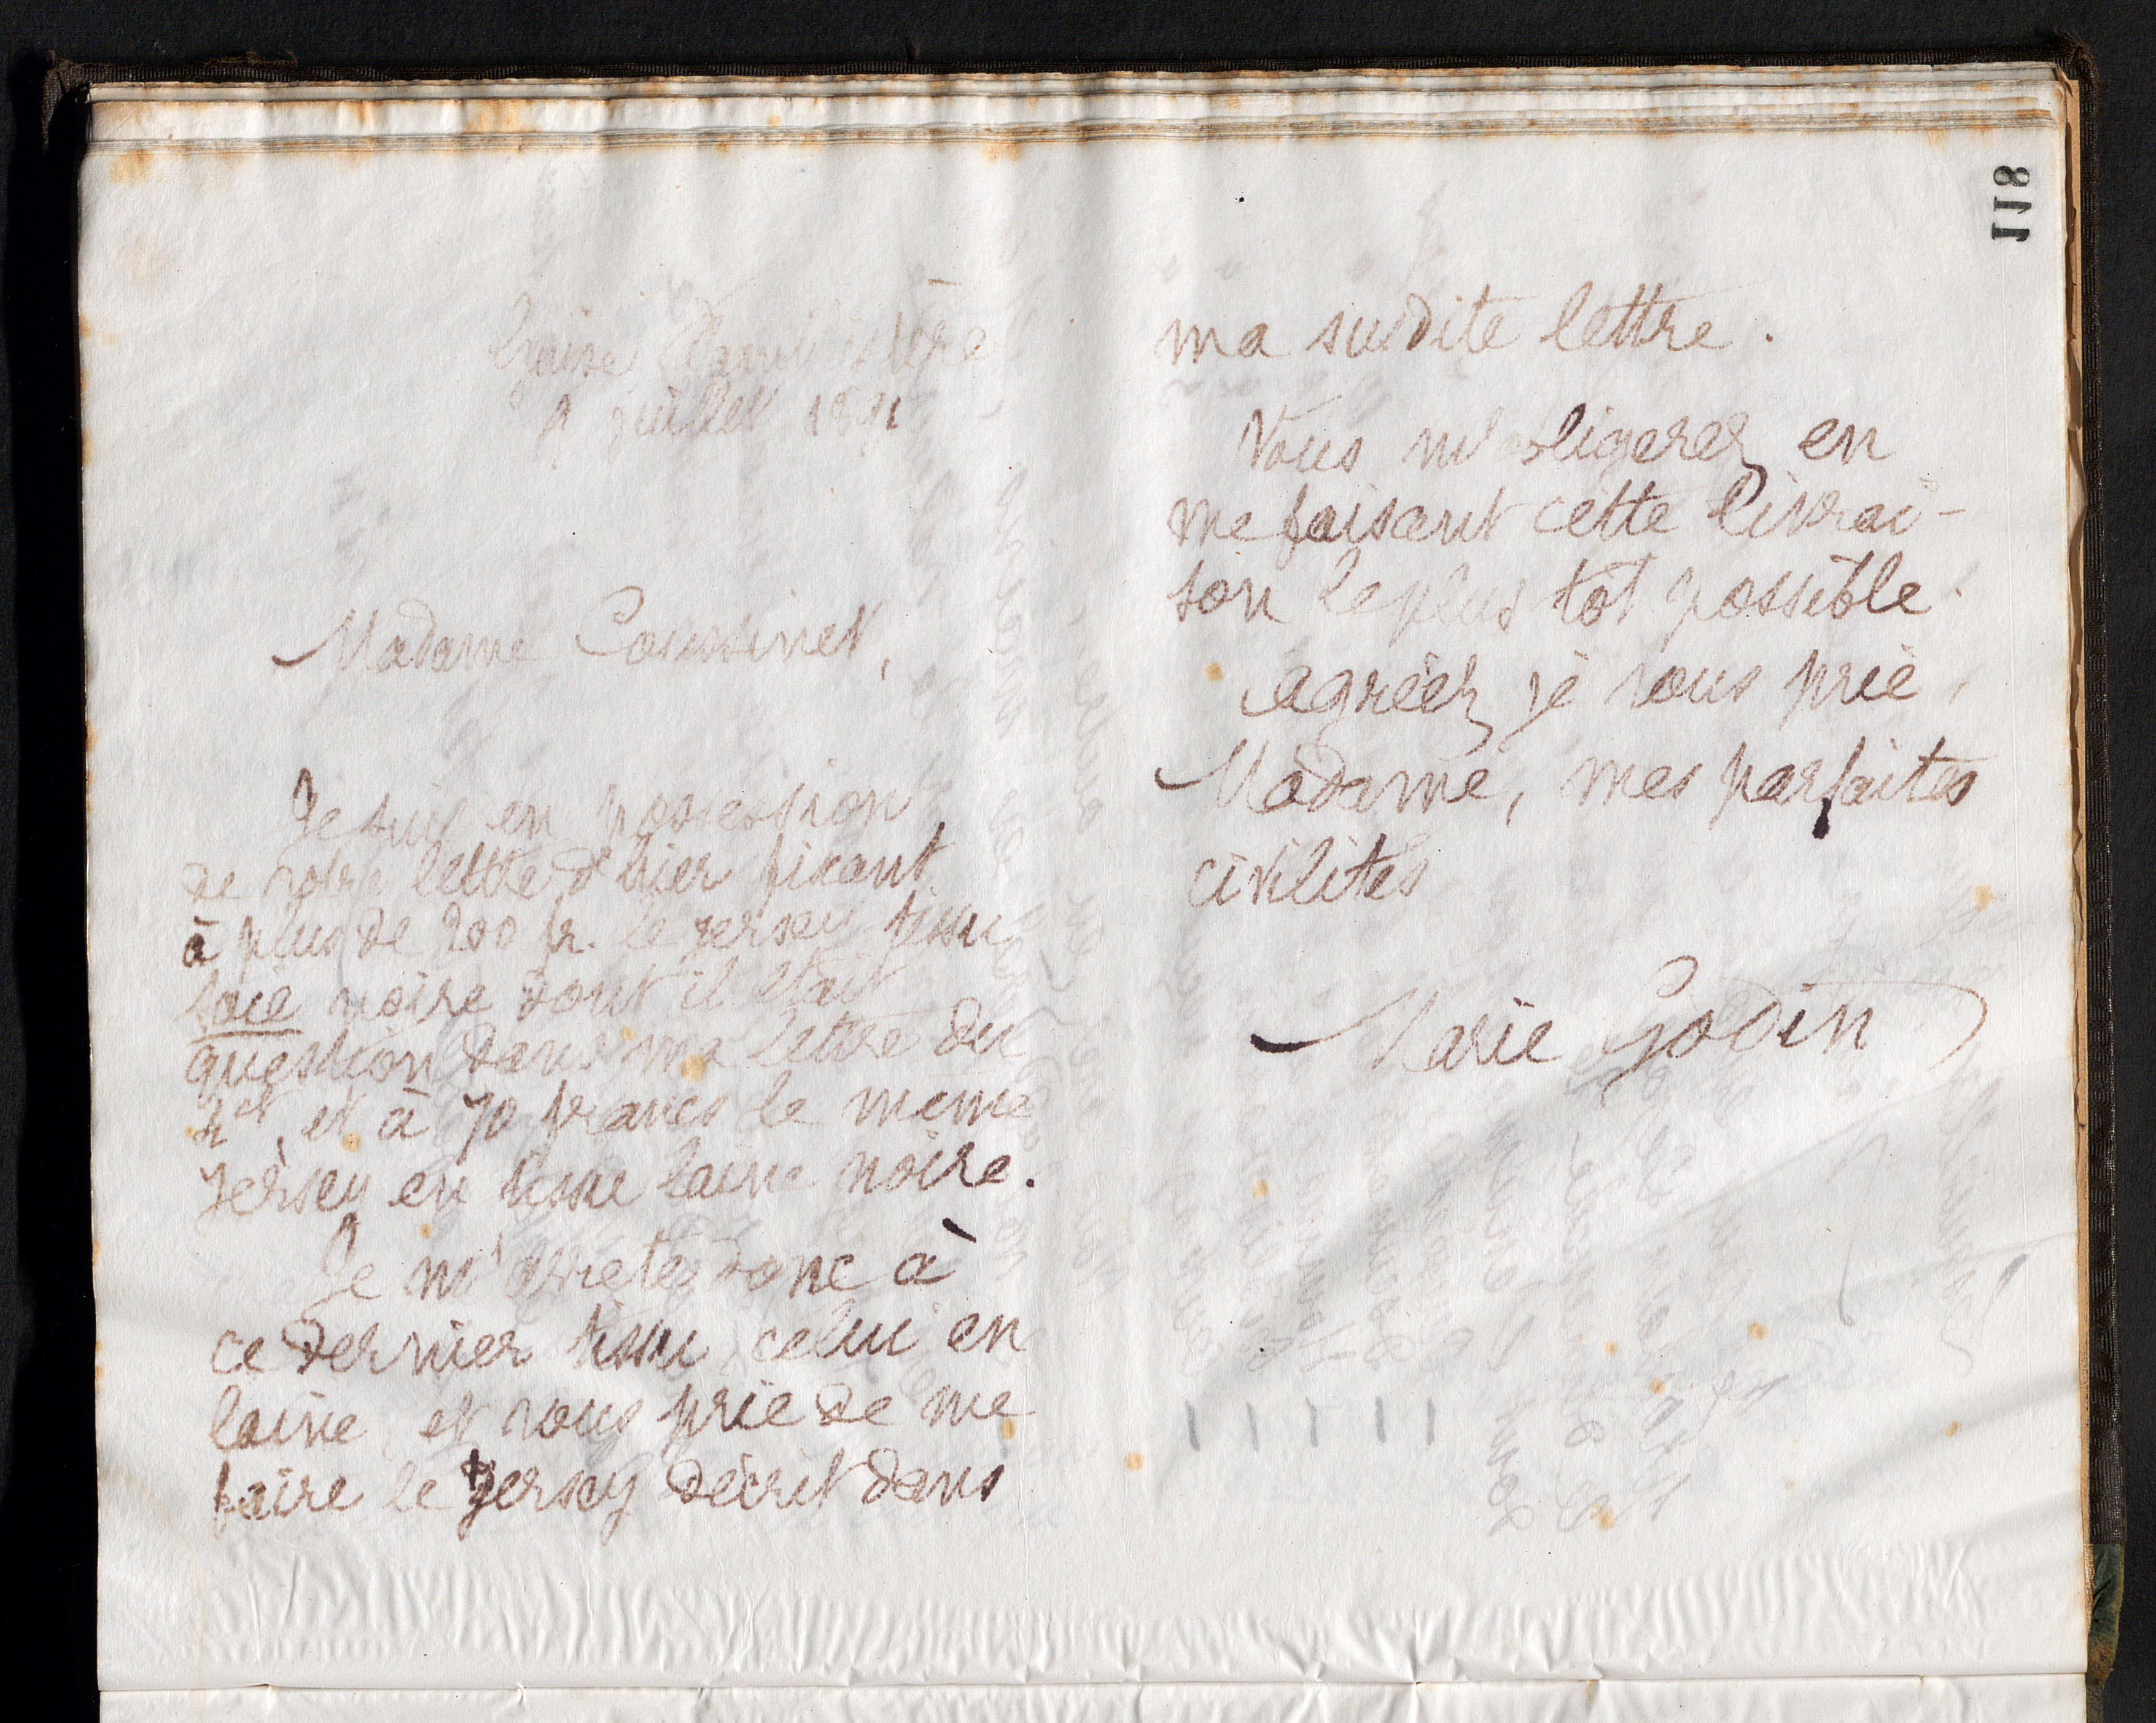 Guise Familistère
9 juillet 1891
Madame Coussinet,
Je suis en possession
de votre lettre d'hier fixant
à plus de 200 fr. le jersey tissu
soie noire dont il était
question dans ma lettre du
et, et à 70 francs le meme
Jersey en tissu laine noire.
Je m'arrete donc à
ce dernier tissu, celui en
laine, et vous prie de me
faire le jersey décrit dans
118
ma susdite lettre.
Vous m'obligerez en
me faisant cette livrai-
son le plus tôt possible.
Agréez, je vous prie,
Madame, mes parfaites
civilités
Marie Godin